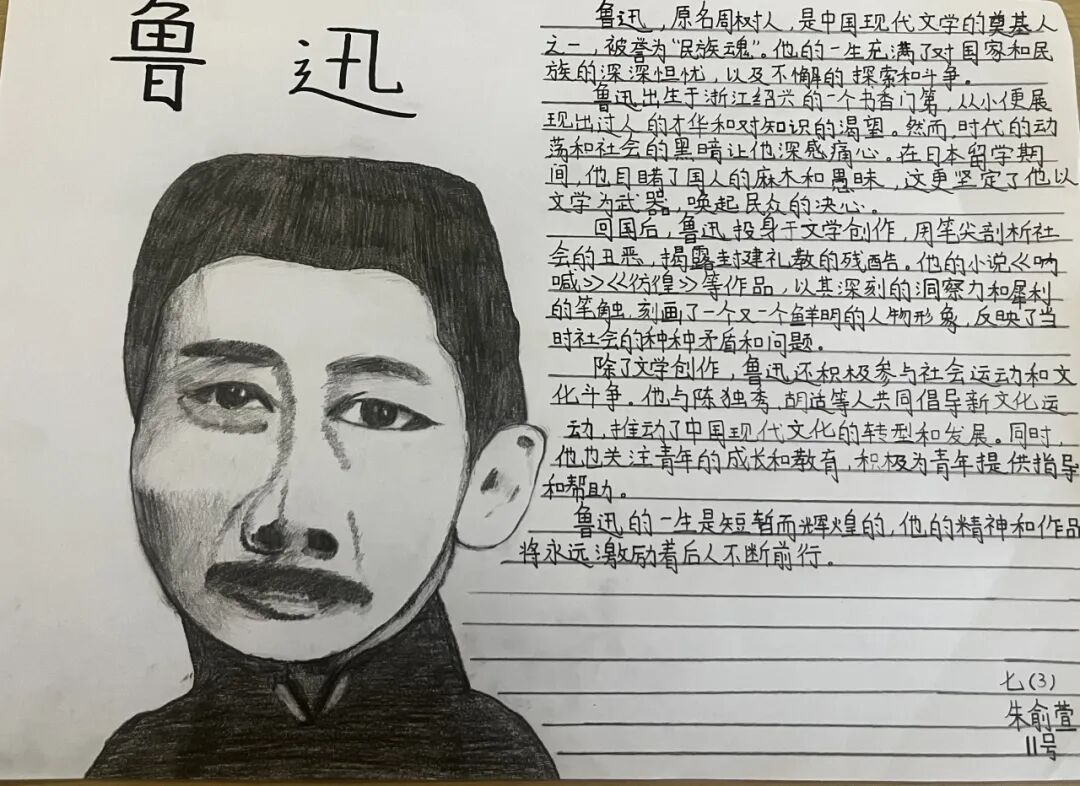 鲁迅
鲁迅，原名周树人，是中国现代文学的奠基人
之一，被誉为“民族魂”。他的一生充满了对国家和民
族的深深担忧，以及不懈的探索和斗争。
鲁迅出生于浙江绍兴的一个书香门第，从小便展
现出过人的才华和对知识的渴望。然而，时代的动
荡和社会的黑暗让他深感痛心。在日本留学期
间，他目睹了国人的麻木和愚昧，这更坚定了他以
文学为武器，唤起民众的决心。
回国后，鲁迅投身于文学创作，用笔尖剖析社
会的丑恶，揭露封建礼教的残酷。他的小说《呐
喊》《彷徨》等作品，以其深刻的洞察力和犀利
的笔触，刻画了一个又一个鲜明的人物形象，反映了当
时社会的种种矛盾和问题。
除了文学创作，鲁迅还积极参与社会运动和文
化斗争。他与陈独秀，胡适等人共同倡导新文化运
动，推动了中国现代文化的转型和发展。同时，
他也关注青年的成长和教育，积极为青年提供指导
和帮助。
鲁迅的一生是短暂而辉煌的，他的精神和作品
将永远激励着后人不断前行。
七(3)
朱俞萱
11号